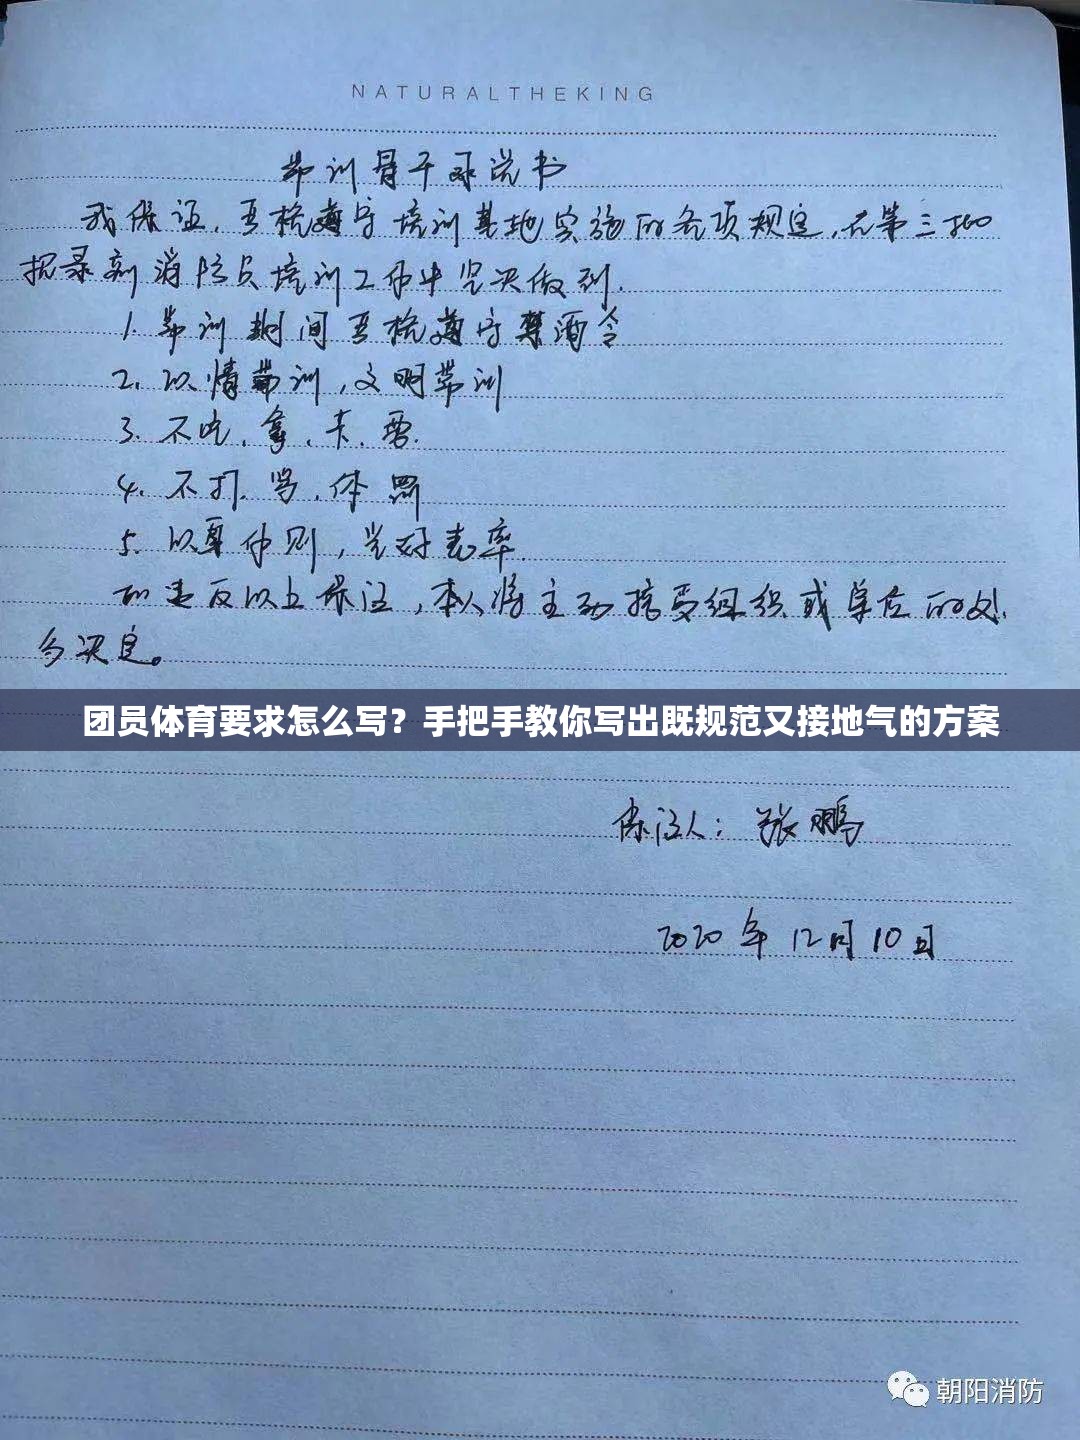 NATURALTHEKING
带训骨干承诺书
我保证,严格遵守培训基地实施的各项规定,在第三批
招录制消防员培训工作中坚决做到.
1. 带训期间严格遵守禁酒令
2. 以情带训,文明带训
3. 不吃、拿、卡、要.
4. 不打、骂、体罚
5. 以身作则,当好表率.
如违反以上保证,本人将主动接受组织或单位的处
分决定。
团员体育要求怎么写?手把手教你写出既规范又接地气的方案
保证人:张鹏
2020年12月10日
朝阳消防